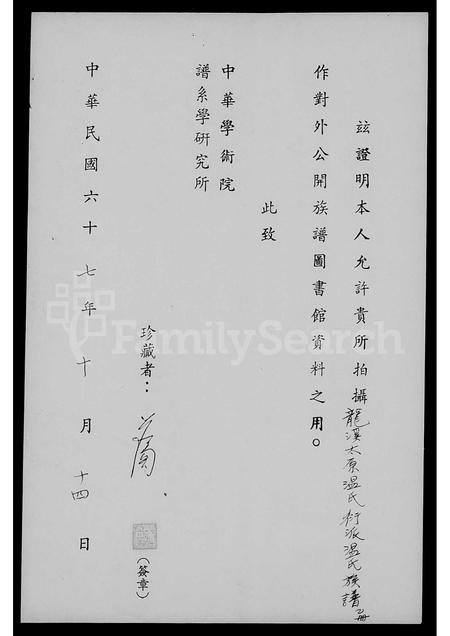 茲證明本人允許貴所拍攝龍溪太原温氏衍派温氏族譜
作對外公開族譜圖書館資料之用。
此致
中華學術院
譜系學研究所
珍藏者：
(簽章)
中華民國六十七年十月十四日
FamilySearch